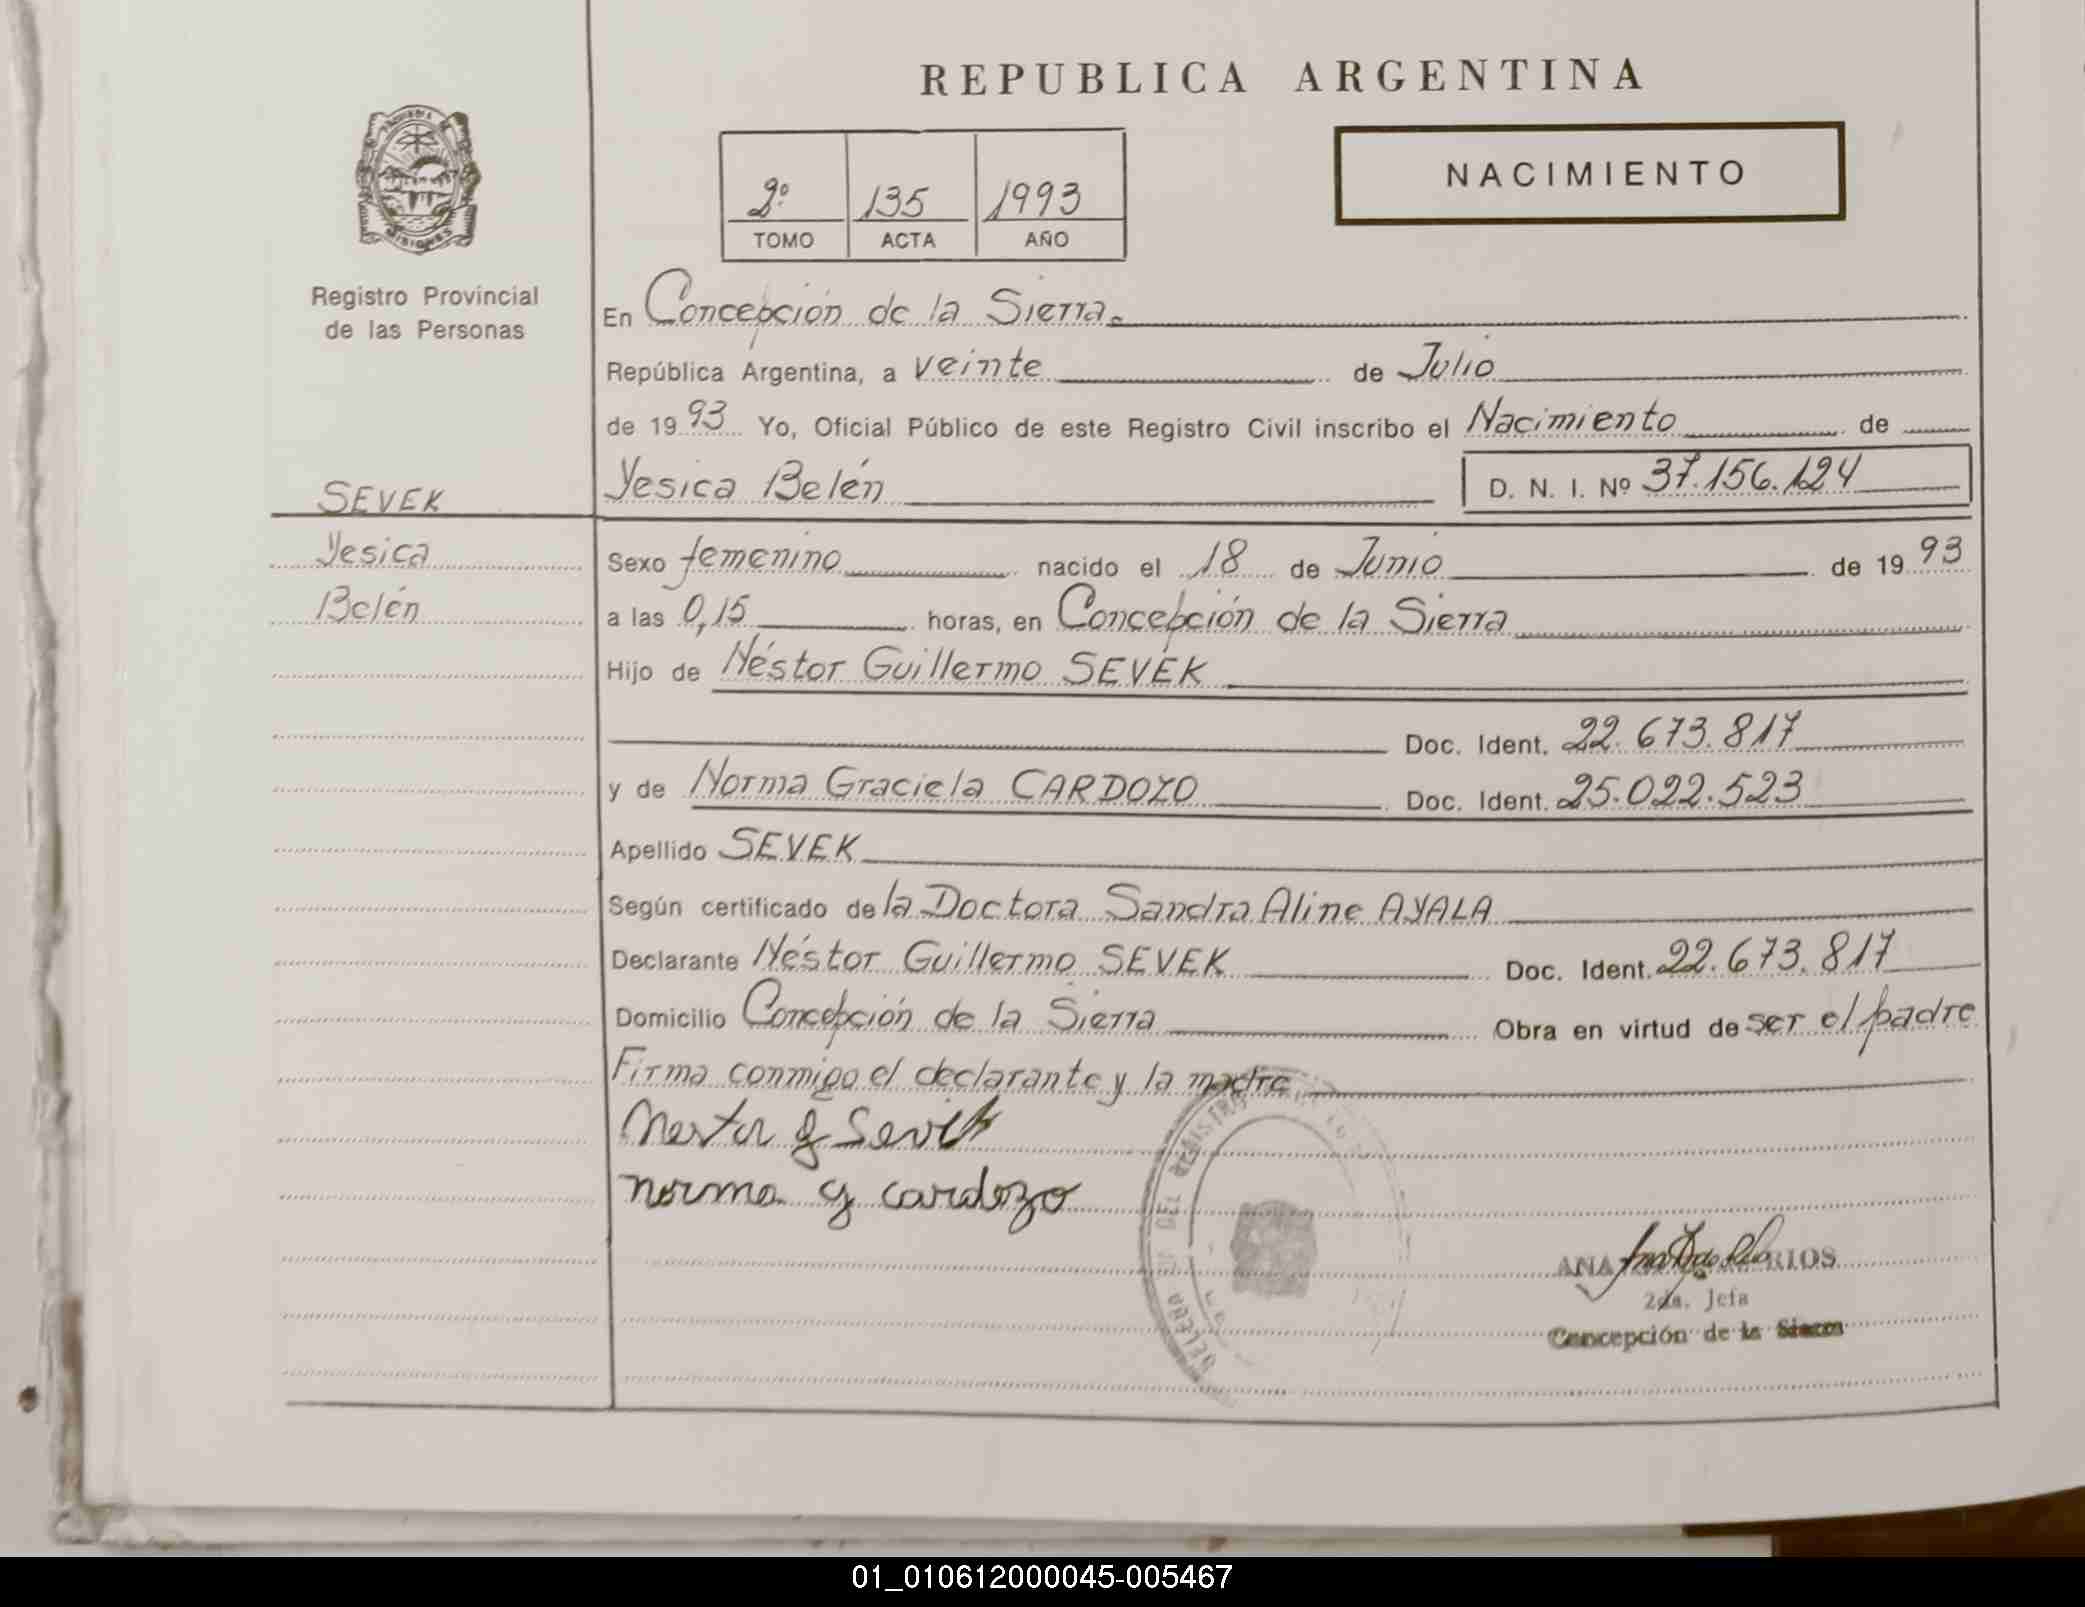 REPUBLICA ARGENTINA
NACIMIENTO
2º 135 1993
TOMO ACTA AÑO
MISIONES
Registro Provincial
de las Personas
En Concepción de la Sierra.
República Argentina, a veinte de Julio
de 1993 Yo, Oficial Público de este Registro Civil inscribo el Nacimiento de
Yesica Belén D. N. I. Nº 37.156.124
SEVEK
Yesica
Belén
Sexo femenino nacido el 18 de Junio de 1993
a las 0,15 horas, en Concepción de la Sierra
Hijo de Néstor Guillermo SEVEK
Doc. Ident. 22.673.817
y de Norma Graciela CARDOZO Doc. Ident. 25.022.523
Apellido SEVEK
Según certificado de la Doctora Sandra Aline AYALA
Declarante Néstor Guillermo SEVEK Doc. Ident. 22.673.817
Domicilio Concepción de la Sierra Obra en virtud de ser el padre
Firma conmigo el declarante y la madre
Nestor G Sevek
norma g cardozo
DEL REGISTRO
ANA RIOS
2da. Jefa
Concepción de la Sierra
01_010612000045-005467